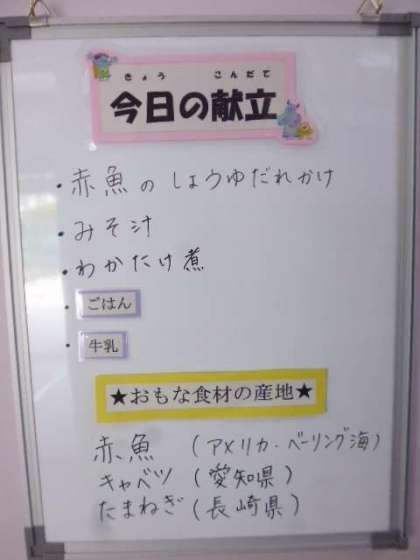 きょう こんだて
今日の献立
・赤魚のしょうゆだれかけ
・みそ汁
・わかたけ煮
・ごはん
・牛乳
★おもな食材の産地★
赤魚 (アメリカ・ベーリング海)
キャベツ (愛知県)
たまねぎ (長崎県)